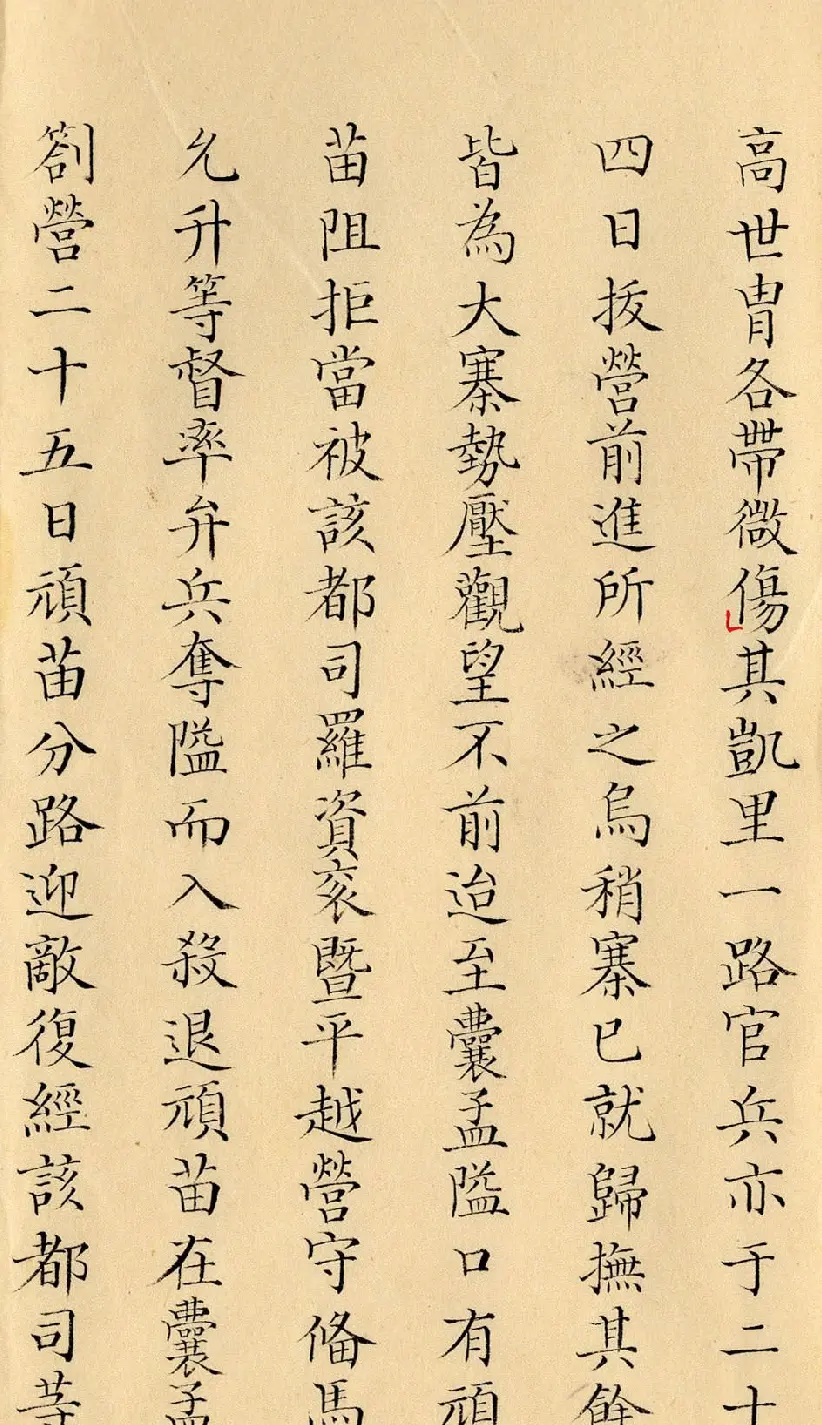 高世冑各帶微傷其凱里一路官兵亦于二十
四日拔營前進所經之烏稍寨已就歸撫其餘
皆為大寨勢壓觀望不前迨至囊孟隘口有頑
苗阻拒當被該都司羅資袞暨平越營守俻馬
允升等督率弁兵奪隘而入殺退頑苗在囊孟
劄營二十五日頑苗分路迎敵復經該都司等